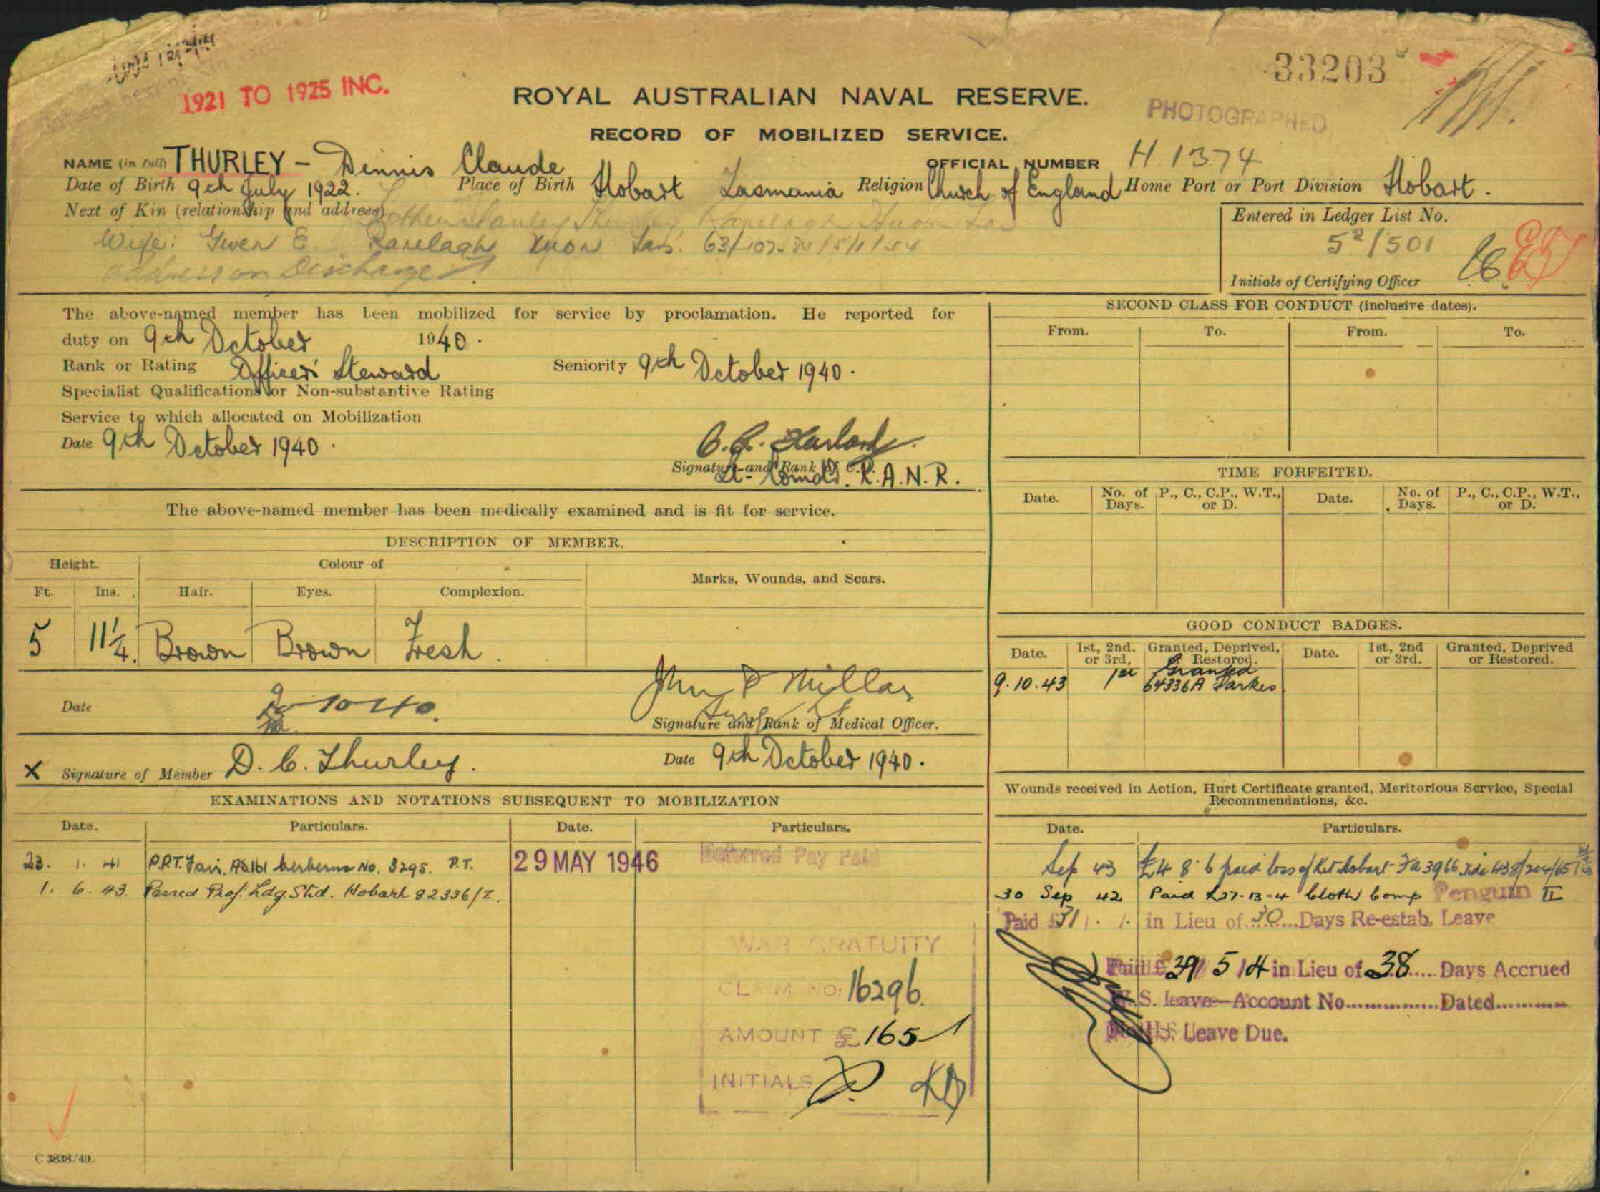 1921 TO 1925 INC.
33203
ROYAL AUSTRALIAN NAVAL RESERVE.
PHOTOGRAPHED
RECORD OF MOBILIZED SERVICE.
NAME (in full) THURLEY - Dennis Claude OFFICIAL NUMBER H 1374
Date of Birth 9th July 1922. Place of Birth Hobart Tasmania Religion Church of England Home Port or Port Division Hobart.
Next of Kin (relationship and address)
Wife: Gwen E. Ranelagh Huon Tas.
address on Discharge
Entered in Ledger List No.
5²/501
Initials of Certifying Officer
The above-named member has been mobilized for service by proclamation. He reported for
duty on 9th October 1940.
Rank or Rating Officers' Steward Seniority 9th October 1940.
Specialist Qualifications or Non-substantive Rating
Service to which allocated on Mobilization
Date 9th October 1940.
Signature and Rank of C.O.
Lt-Comdr. R.A.N.R.
The above-named member has been medically examined and is fit for service.
DESCRIPTION OF MEMBER.
Height. Colour of Marks, Wounds, and Scars.
Ft. Ins. Hair. Eyes. Complexion.
5 11¼ Brown Brown Fresh
Date 9-10-40. John P Millar
Signature and Rank of Medical Officer.
X Signature of Member D. C. Thurley. Date 9th October 1940.
EXAMINATIONS AND NOTATIONS SUBSEQUENT TO MOBILIZATION
Date. Particulars. Date. Particulars.
23. 1. 41 P.P.T. Fair. Cerberus No. 3295. P.T.
1. 6. 43 Passed Prof. Ldg Std. Hobart 82336/I.
29 MAY 1946 Deferred Pay Paid
WAR GRATUITY
CLAIM NO. 16296
AMOUNT £165
INITIALS
C 3838/40.
SECOND CLASS FOR CONDUCT (inclusive dates).
From. To. From. To.
TIME FORFEITED.
Date. No. of Days. P., C., C.P., W.T., or D. Date. No. of Days. P., C., C.P., W.T., or D.
GOOD CONDUCT BADGES.
Date. 1st, 2nd. or 3rd, Granted, Deprived, Restored. Date. 1st, 2nd or 3rd. Granted, Deprived or Restored.
9.10.43 1st Granted
64336A Parkes
Wounds received in Action, Hurt Certificate granted, Meritorious Service, Special
Recommendations, &c.
Date. Particulars.
Sep 43 £4 8 6 paid loss of kit Hobart
30 Sep 42 Paid £27-13-4 Cloth Comp Penguin II
Paid £31 in Lieu of 30 Days Re-estab. Leave
Paid £39 5/4 in Lieu of 38 Days Accrued
W.S. leave-Account No. Dated
Leave Due.